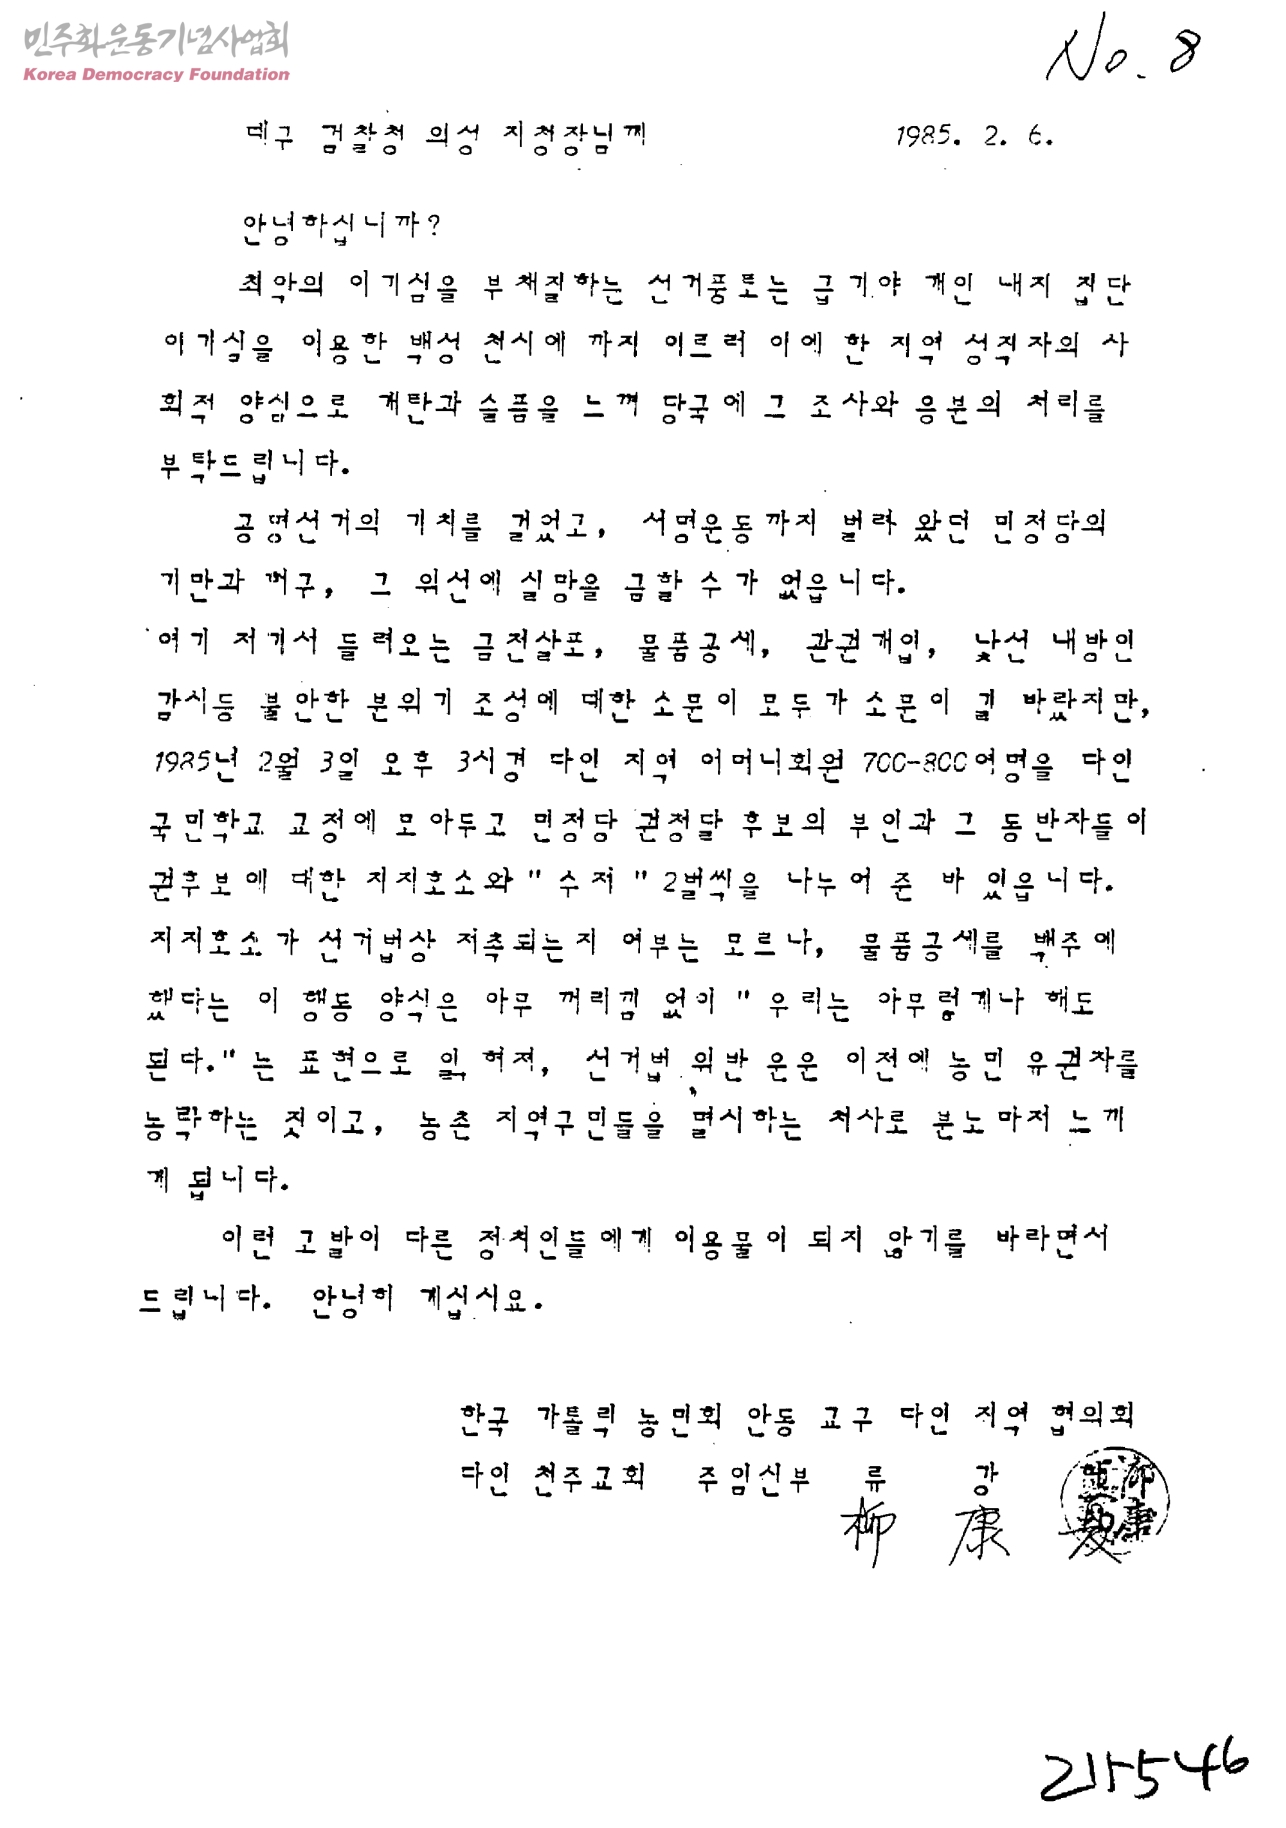 민주화운동기념사업회
Korea Democracy Foundation
No. 8
대구 검찰청 의성 지청장님께 1985. 2. 6.
안녕하십니까?
최악의 이기심을 부채질하는 선거풍토는 급기야 개인 내지 집단
이기심을 이용한 백성 천시에 까지 이르러 이에 한 지역 성직자의 사
회적 양심으로 개탄과 슬픔을 느껴 당국에 그 조사와 응분의 처리를
부탁드립니다.
공명선거의 기치를 걸었고, 서명운동까지 벌려 왔던 민정당의
기만과 허구, 그 위선에 실망을 금할 수가 없읍니다.
여기 저기서 들려오는 금전살포, 물품공세, 관권개입, 낯선 내방인
감시등 불안한 분위기 조성에 대한 소문이 모두가 소문이 길 바랐지만,
1985년 2월 3일 오후 3시경 다인 지역 어머니회원 700-800여명을 다인
국민학교 교정에 모아두고 민정당 권정달 후보의 부인과 그 동반자들이
권후보에 대한 지지호소와 " 수저 " 2벌씩을 나누어 준 바 있읍니다.
지지호소가 선거법상 저촉되는지 여부는 모르나, 물품공세를 백주에
했다는 이 행동 양식은 아무 꺼리낌 없이 " 우리는 아무렇게나 해도
된다." 는 표현으로 읽 혀져, 선거법 위반 운운 이전에 농민 유권자를
농락하는 짓이고, 농촌 지역구민들을 멸시하는 처사로 분노마저 느끼
게 됩니다.
이런 고발이 다른 정치인들에게 이용물이 되지 않기를 바라면서
드립니다. 안녕히 계십시요.
한국 가톨릭 농민회 안동 교구 다인 지역 협의회
다인 천주교회 주임신부 류 강
柳 康 夏
215546